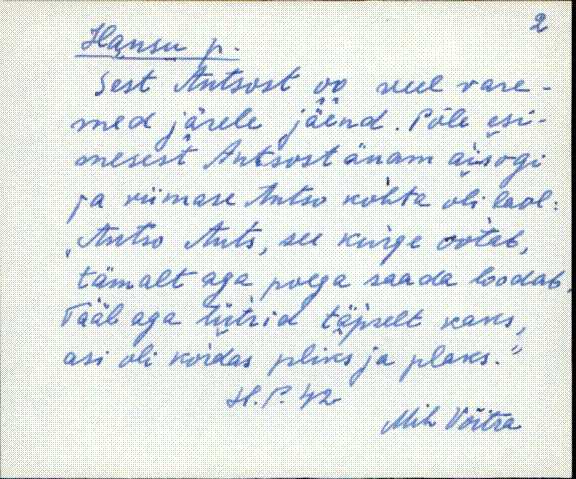 2
Hansu p.
Sest Antsost oo veel vare-
med järele jäend. Põle esi-
mesest Antsost änam aisogi
ja viimase Antso kohta oli laol:
"Antso Ants, see kurge ootab,
tämalt aga poega saada loodab,
Tääb aga tütrid täpselt kaks,
asi oli kõrdas pliks ja plaks."
H.P. 42
Mih Võitra